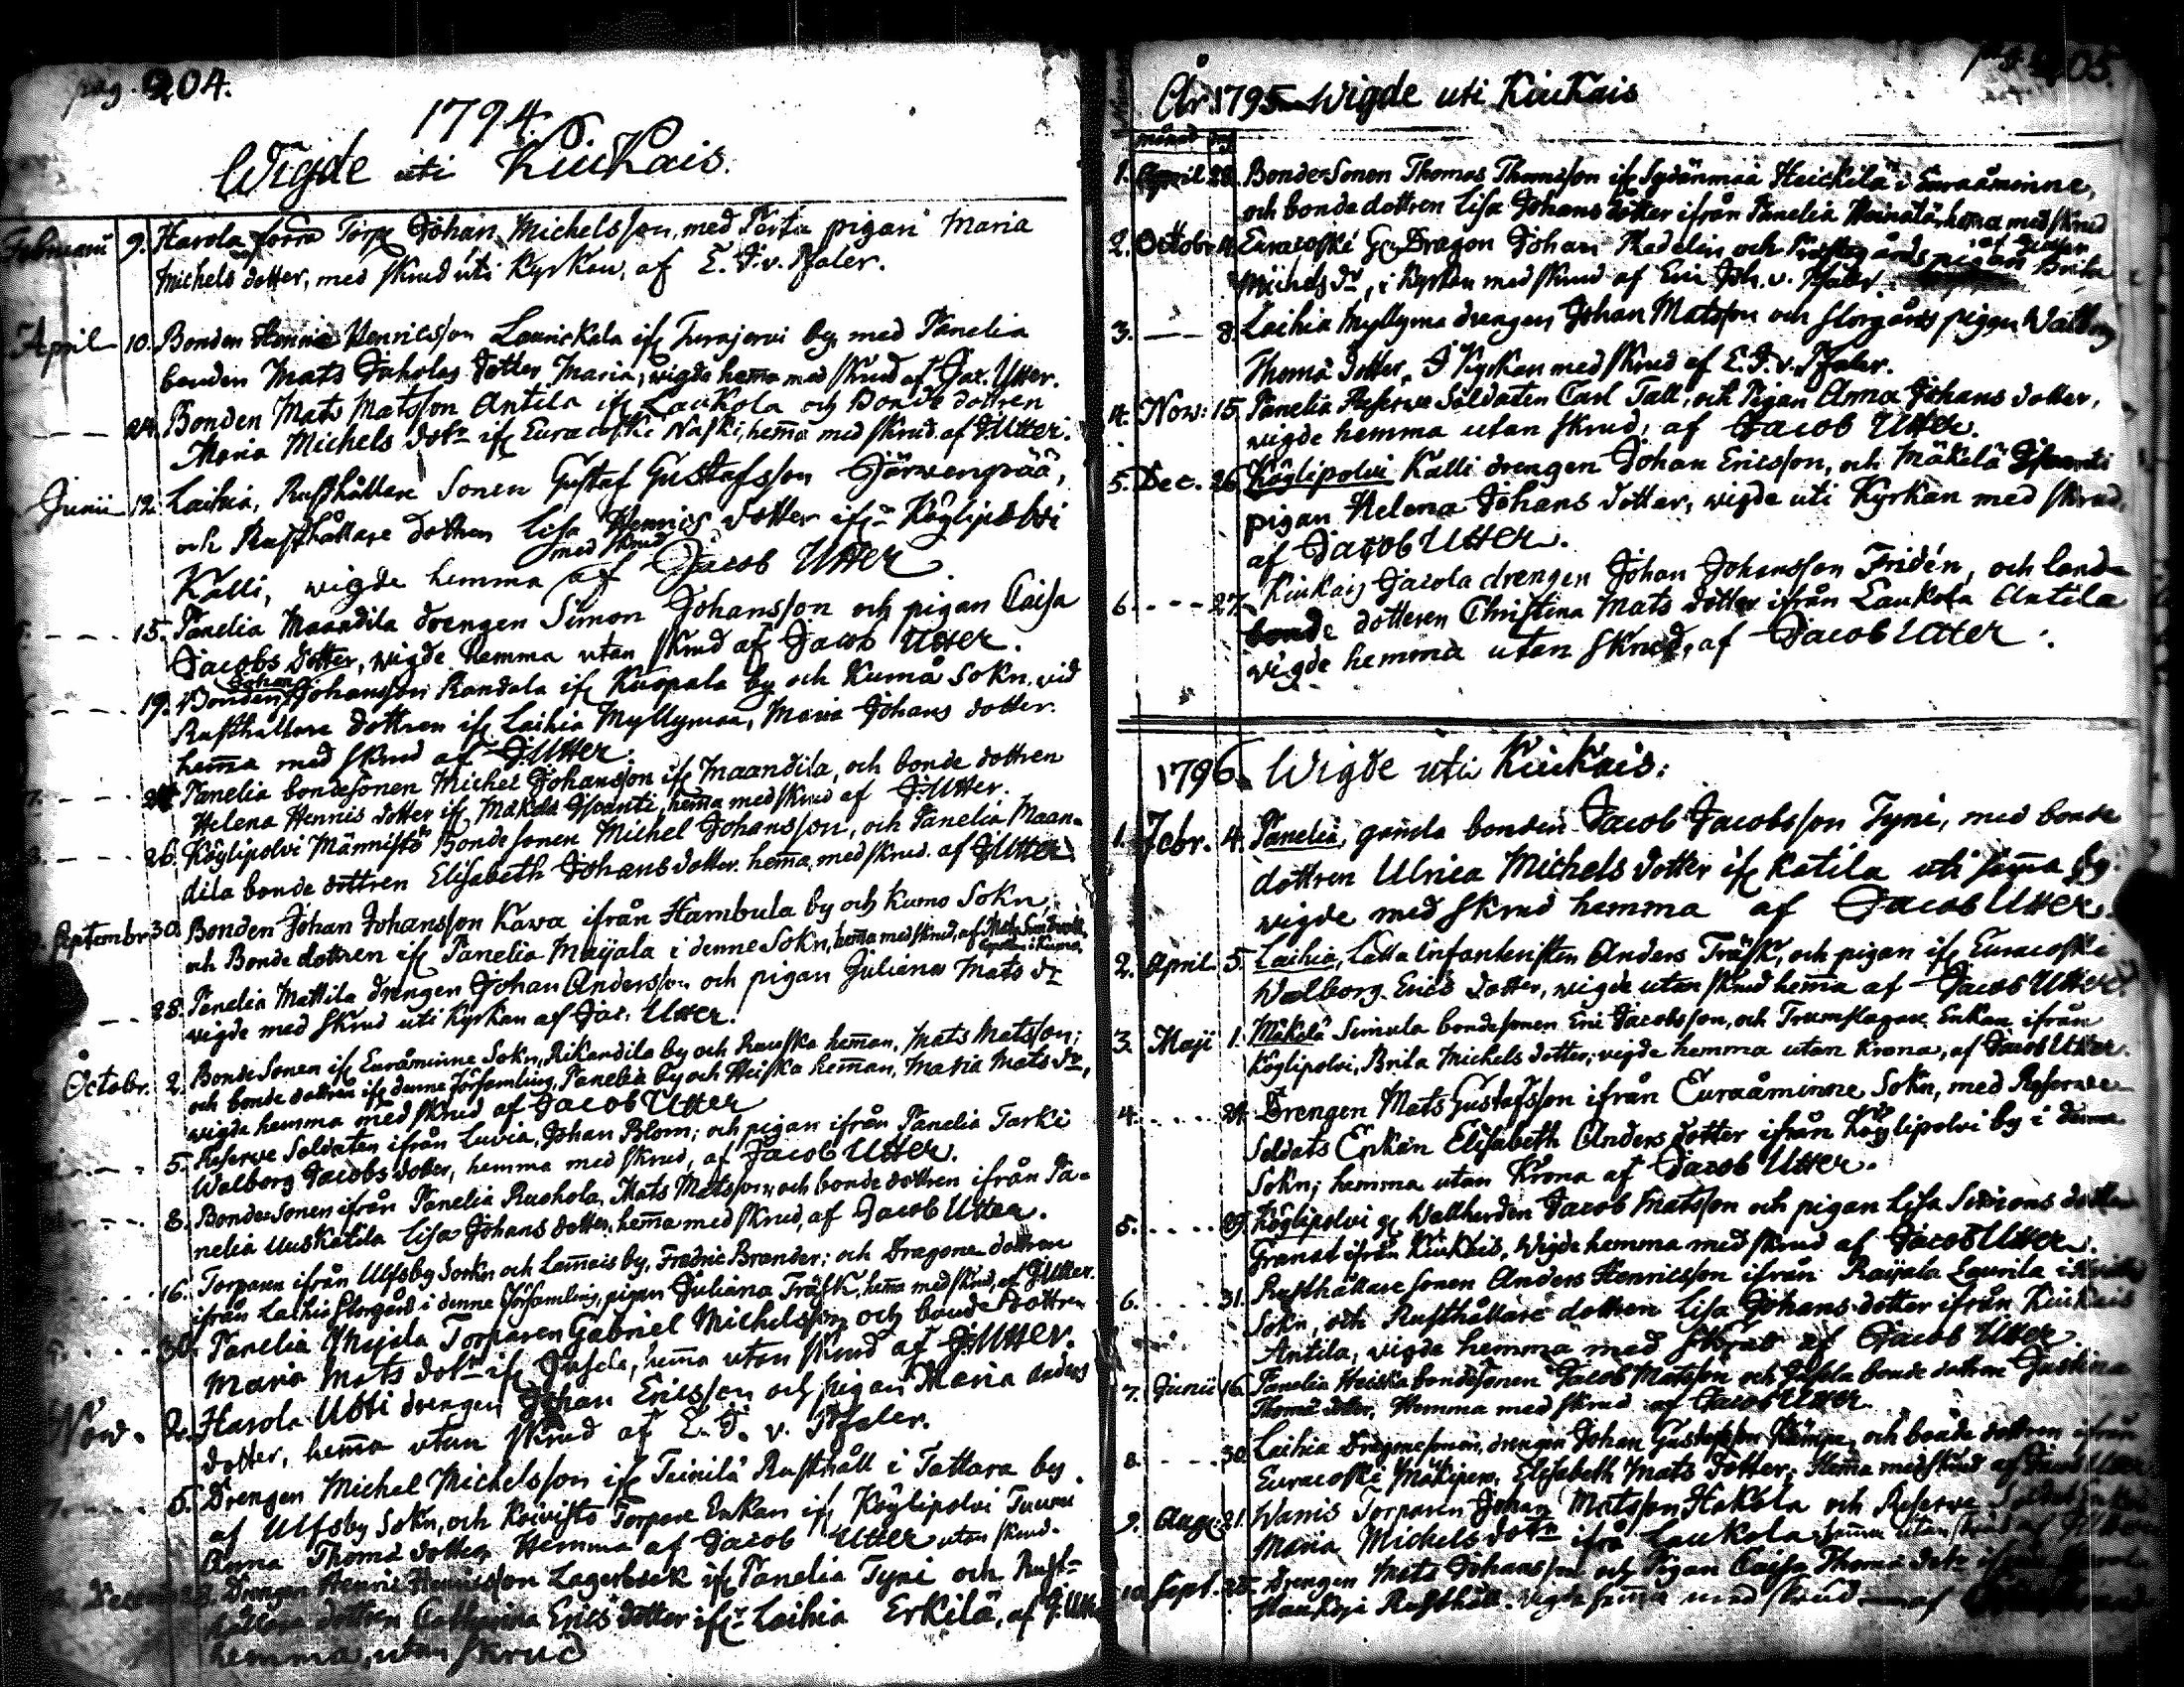 pag. 204.
1794.
Wigde uti Kiukais.
Februarii 9. Harola Torp Johan Michelsson, med Perta pigan Maria
Michels dotter, med skrud uti Kyrkan, af E. J. v. Pfaler.
April 10. Bonden Henric Henricsson Lauriskala ifr Turajervi by, med Panelia
bonden Mats Juholas dotter Maria, wigde hemma med skrud af Jac. Utter.
24. Bonden Mats Matsson Antila ifr Laukola och Bonde dottren
Maria Michels dotr ifr Euracoski Naski, hemma med skrud af J. Utter.
Junii 12. Laihia, Rusthållare Sonen Gustaf Gustafsson Järwenpää,
och Rusthållare dottren Lisa Henrics dotter ifrn Köylipolvi
Kalli, wigde hemma med skrud af Jacob Utter
15. Panelia Maandila drengen Simon Johansson och pigan Caisa
Jacobs dotter, wigde hemma utan skrud af Jacob Utter.
19. Bonden Johan Johansson Randala ifr Kuopala by och Kumå Sokn. vid
Rusthållare dottren ifr Laihia Myllymaa, Maria Johans dotter.
hema med skrud af J Utter.
Panelia bondesonen Michel Johansson ifr Maandila, och bonde dottren
Helena Henrics dotter ifr Mäkelä Isoantti, hema med skrud af J. Utter.
26. Köylipolvi Männistö Bonde sonen Michel Johansson, och Panelia Maan-
dila bonde dottren Elisabeth Johans dotter. hema, med skrud. af J Utter.
Septembr 30. Bonden Johan Johansson Kawa ifrån Hambula by och Kumo Sokn,
och Bonde dottren ifr Panelia Maijala i denne Sokn, hema med skrud, af
28. Panelia Mattila drengen Johan Andersson och pigan Juliana Mats dr
wigde med skrud uti Kyrkan af Jac. Utter.
Octobr. 2. Bonde Sonen ifr Euråminne Sokn, Rikandila by och Rauska heman, Mats Matsson;
och bonde dottren ifr denne Församling, Panelia by och Heiska heman, Maria Mats dr,
wigde hemma med skrud af Jacob Utter
5. Reserve Soldaten ifrån Luvia, Johan Blom; och pigan ifrån Panelia Tarki
Walborg Jacobs dotter, hemma med skrud, af Jacob Utter.
8. Bonde Sonen ifrån Panelia Ruohola, Mats Matsson, och bonde dottren ifrån Pa-
nelia Uuskatila Lisa Johans dotter, hema med skrud, af Jacob Utter.
16. Torparen ifrån Ulfsby Sockn och Lameis by, Fredric Brander; och Dragone dottren
ifrån Laihia Storgård i denne Församling, pigan Juliana Träsk, hema med skrud, af J Utter.
30. Panelia Torparen Gabriel Michelsson och bonde dottren
Maria Mats dotr ifr Jusela, hema utan skrud af J Utter.
Now. 2. Harola Utti drengen Johan Ericsson och pigan Maria Anders
dotter, hema utan skrud af E. J. v. Pfaler.
5. Drengen Michel Michelsson ifr Teinilä Rusthåll i Tattara by
af Ulfsby Sokn, och Koivisto Torpare Enkan ifr Köylipolvi Tuomi
Anna Thomä dotter Hemma af Jacob Utter utan skrud.
Drengen Henric Henricsson Lagerbäck ifr Panelia Tyni och Rust-
hållare dottren Catharina Erics dotter ifrn Laihia Erkilä, af J. Utter
hemma, utan skrud
pag. 205.
År 1795 Wigde uti Kiukais
månad
1. April 28. Bonde Sonen Thomas Thomasson ifr Sydänmaa Heickilä i Euraåminne,
och bonde dottren Lisa Johans dotter ifrån Panelia Heinilä, hema med skrud
af J Utter
2. Octobr Euracoski Gl Dragon Johan och Prästegårds pigan Brita
Michels dr, i Kyrkan med skrud af Eric Joh. v. Pfaler.
3. — 8. Laihia Myllyma drengen Johan Matsson och Storgårds pigan Walborg
Thomä dotter, I Kyrkan med skrud af E. J. v. Pfaler.
4. Now: 15. Panelia Reserve Soldaten Carl Tall, och Pigan Anna Johans dotter,
wigde hemma utan skrud, af Jacob Utter.
5. Dec. 26. Köylipolvi Kalli drengen Johan Ericsson, och Mäkelä Isoantti
pigan Helena Johans dotter, wigde uti Kyrkan med skrud,
af Jacob Utter.
6. 27. Kiukais Jacola drengen Johan Johansson Fridén, och
bonde dotteren Christina Mats dotter ifrån Laukola Antila
wigde hemma utan skrud, af Jacob Utter.
1796. Wigde uti Kiukais:
1. Febr. 4. Panelia, gamla bonden Jacob Jacobsson Tyni, med bonde
dottren Ulrica Michels dotter ifr Katila uti sama by.
wigde med skrud hemma af Jacob Utter.
2. April 5. Laihia, Lätta Infanteristen Anders Träsk, och pigan ifr Euracoski
Walborg Erics dotter, wigde utan skrud hema af Jacob Utter.
3. Maji 1. Mäkelä Seimula bondesonen Eric Jacobsson, och Trumslagare Enkan ifrån
Köylipolvi, Brita Michels dotter, wigde hemma utan Krona, af Jacob Utter.
4. 24. Drengen Mats Gustafsson ifrån Euraåminne Sokn, med Reserve
Soldats Enkan Elisabeth Anders dotter ifrån Köylipolvi by i denne
Sokn; hemma utan Krona af Jacob Utter.
5. 29. Köylipolvi Wallherden Jacob Matsson och pigan Lisa Simons dotter
Granat ifrån Kiukais, Wigde hemma med skrud af Jacob Utter.
6. 31. Rusthållare sonen Anders Henricsson ifrån Raijala Laurila
Sokn, och Rusthållare dottren Lisa Johans dotter ifrån Kiukais
Antila, wigde hemma med skrud af Jacob Utter
7. Junii 16. Panelia Heiska bondesonen Jacob Matsson och Jusela bonde dottren Justina
Thomä dotter, Hemma med skrud af Jacob Utter.
8. 30. Laihia Dragonesonen, drengen Johan Gustafsson Kämpe, och bonde dottren ifrån
Euracoski Mäkipere, Elisabeth Mats dotter; Hema med skrud af Jacob Utter
9. Aug: 21. Wanis Torparen Johan Matsson Hakola och Reserve Soldat
Maria Michels dotr ifrå Laukola hema utan skrud af J Utter
10. Sept. 25. Drengen Mats Johansson och Pigan Caisa Thomä dotr
Rusthåll. wigde hema med skrud af